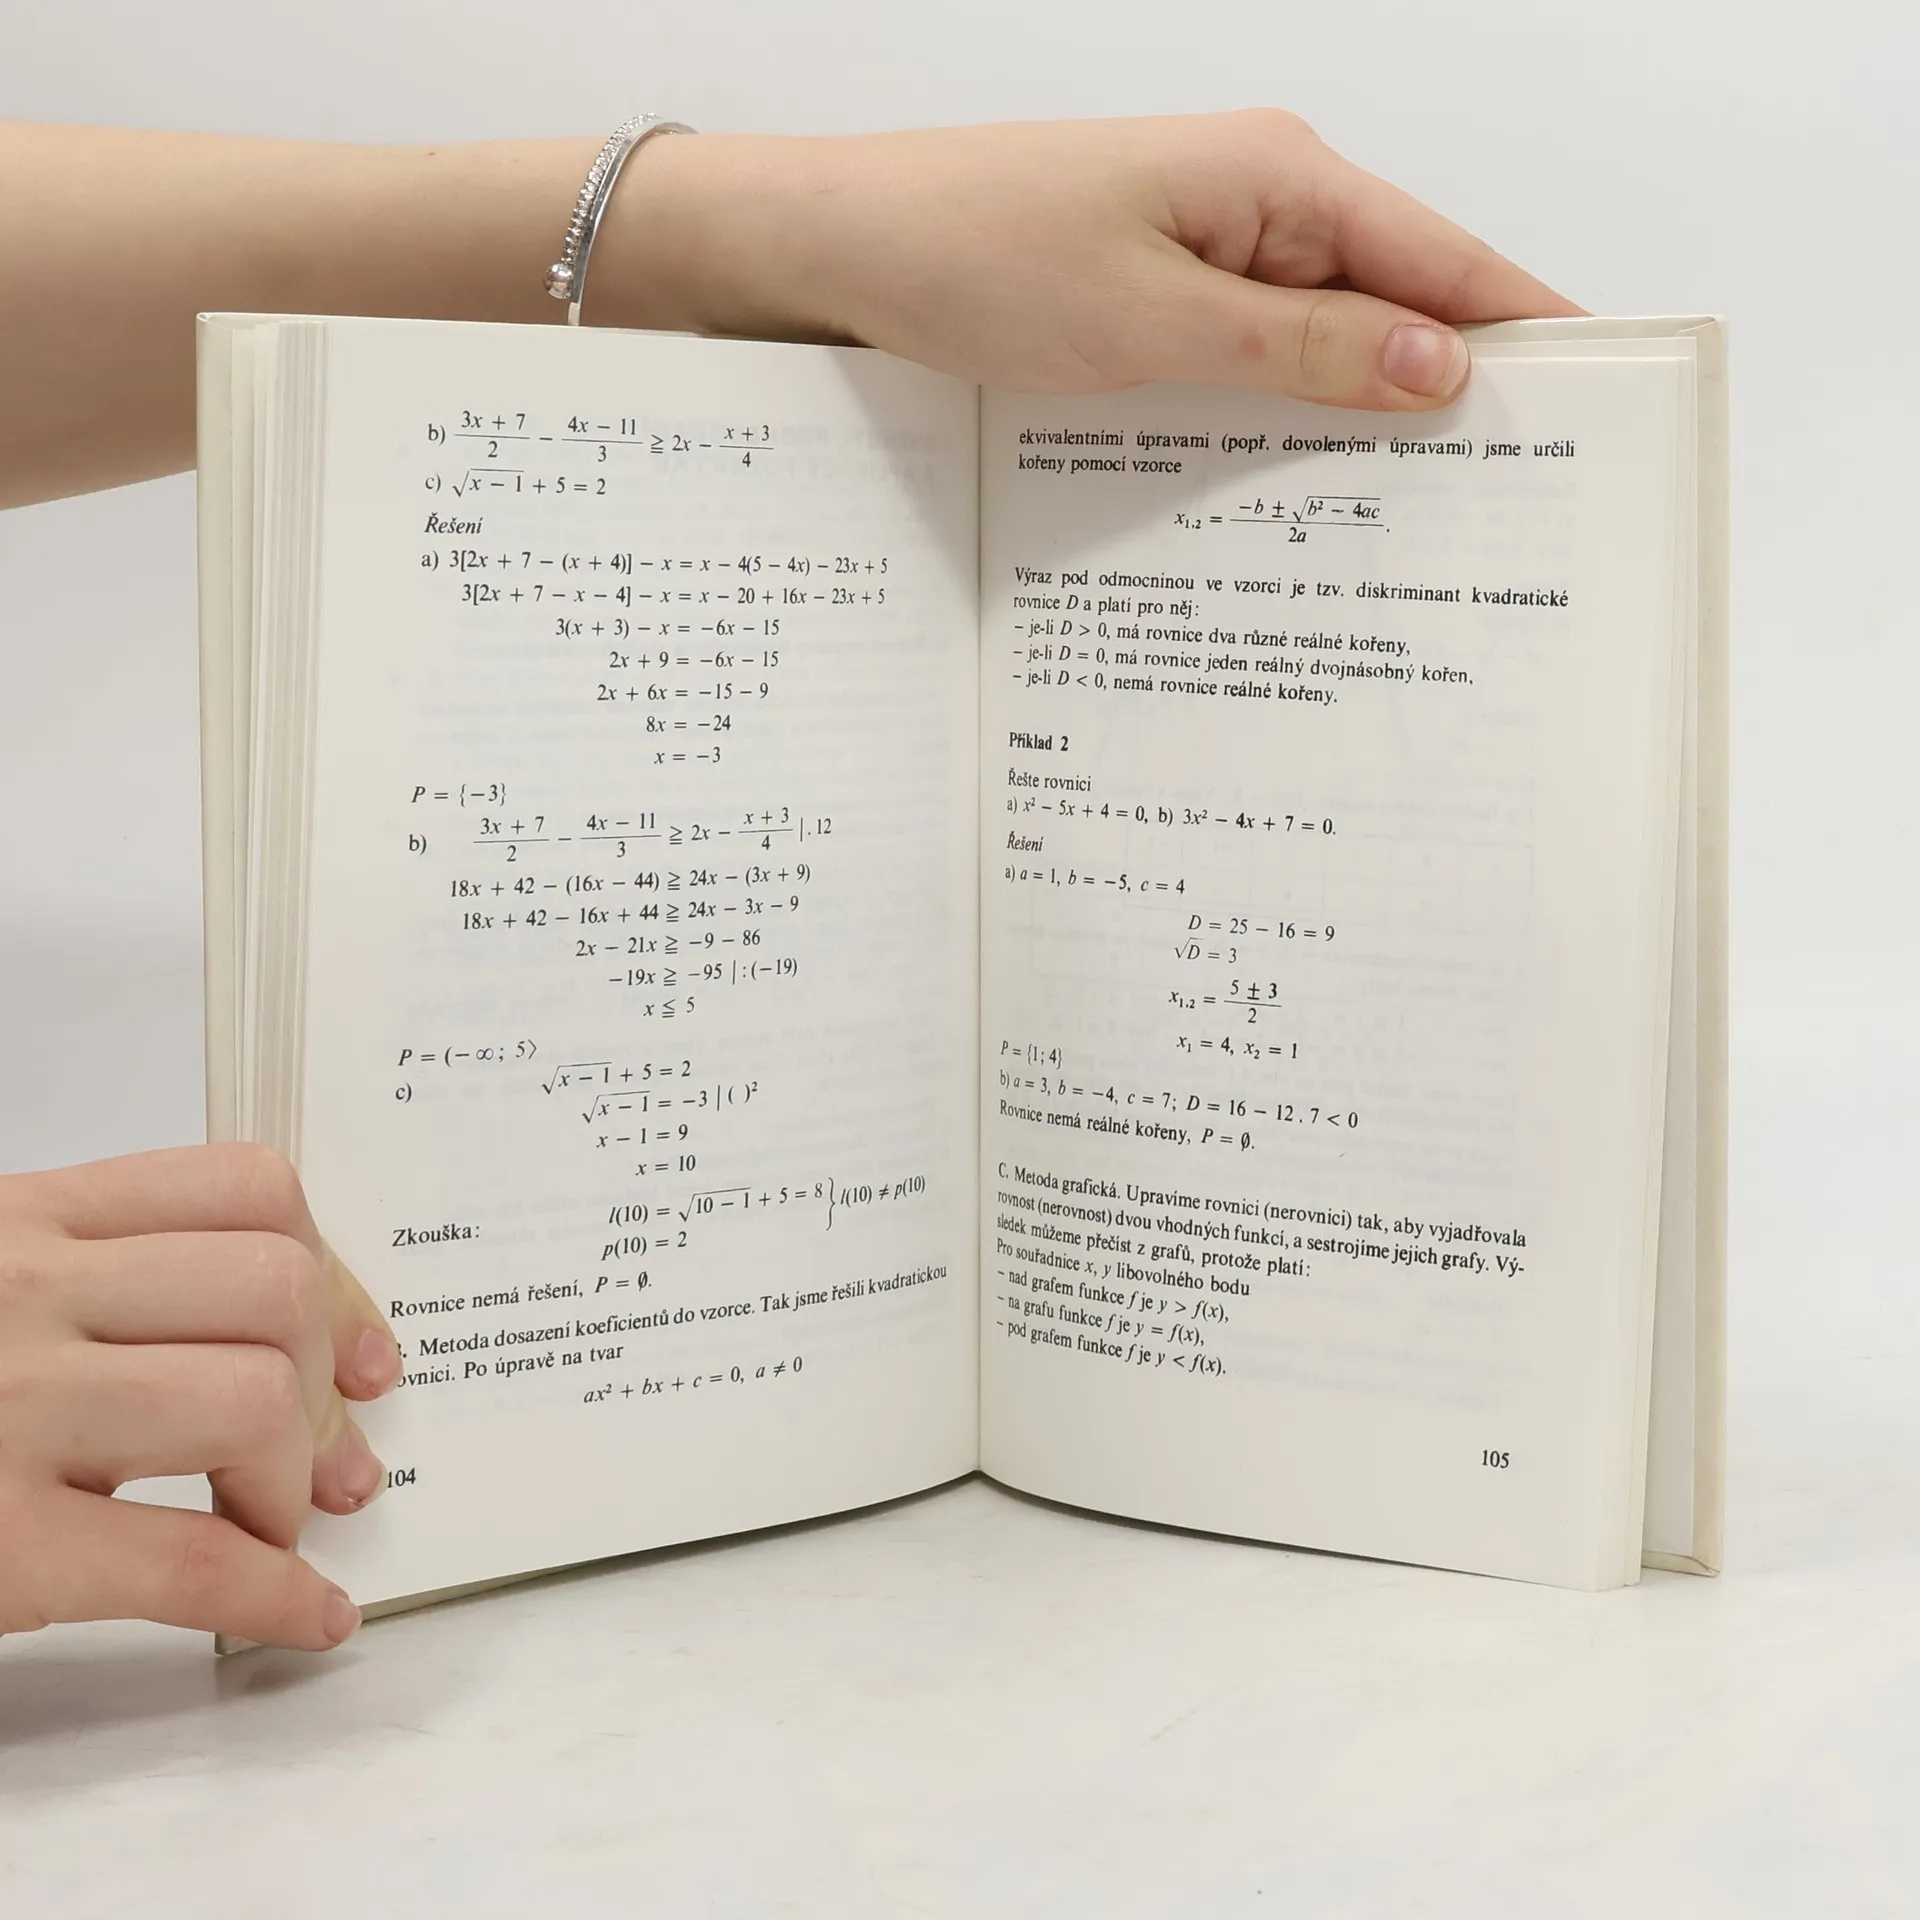 b) (3x + 7)/2 − (4x − 11)/3 ≧ 2x − (x + 3)/4
c) √(x − 1) + 5 = 2
Řešení
a) 3[2x + 7 − (x + 4)] − x = x − 4(5 − 4x) − 23x + 5
3[2x + 7 − x − 4] − x = x − 20 + 16x − 23x + 5
3(x + 3) − x = −6x − 15
2x + 9 = −6x − 15
2x + 6x = −15 − 9
8x = −24
x = −3
P = {−3}
b) (3x + 7)/2 − (4x − 11)/3 ≧ 2x − (x + 3)/4 | . 12
18x + 42 − (16x − 44) ≧ 24x − (3x + 9)
18x + 42 − 16x + 44 ≧ 24x − 3x − 9
2x − 21x ≧ −9 − 86
−19x ≧ −95 | :(−19)
x ≦ 5
P = (−∞; 5⟩
c) √(x − 1) + 5 = 2
√(x − 1) = −3 | ( )²
x − 1 = 9
x = 10
Zkouška: l(10) = √(10 − 1) + 5 = 8 } l(10) ≠ p(10)
p(10) = 2
Rovnice nemá řešení, P = ∅.
. Metoda dosazení koeficientů do vzorce. Tak jsme řešili kvadratickou
ovnici. Po úpravě na tvar
ax² + bx + c = 0, a ≠ 0
104
ekvivalentními úpravami (popř. dovolenými úpravami) jsme určili
kořeny pomocí vzorce
x₁,₂ = (−b ± √(b² − 4ac))/2a.
Výraz pod odmocninou ve vzorci je tzv. diskriminant kvadratické
rovnice D a platí pro něj:
– je-li D > 0, má rovnice dva různé reálné kořeny,
– je-li D = 0, má rovnice jeden reálný dvojnásobný kořen,
– je-li D < 0, nemá rovnice reálné kořeny.
Příklad 2
Řešte rovnici
a) x² − 5x + 4 = 0, b) 3x² − 4x + 7 = 0.
Řešení
a) a = 1, b = −5, c = 4
D = 25 − 16 = 9
√D = 3
x₁,₂ = (5 ± 3)/2
x₁ = 4, x₂ = 1
P = {1; 4}
b) a = 3, b = −4, c = 7; D = 16 − 12 . 7 < 0
Rovnice nemá reálné kořeny, P = ∅.
C. Metoda grafická. Upravíme rovnici (nerovnici) tak, aby vyjadřovala
rovnost (nerovnost) dvou vhodných funkcí, a sestrojíme jejich grafy. Vý-
sledek můžeme přečíst z grafů, protože platí:
Pro souřadnice x, y libovolného bodu
– nad grafem funkce f je y > f(x),
– na grafu funkce f je y = f(x),
– pod grafem funkce f je y < f(x).
105